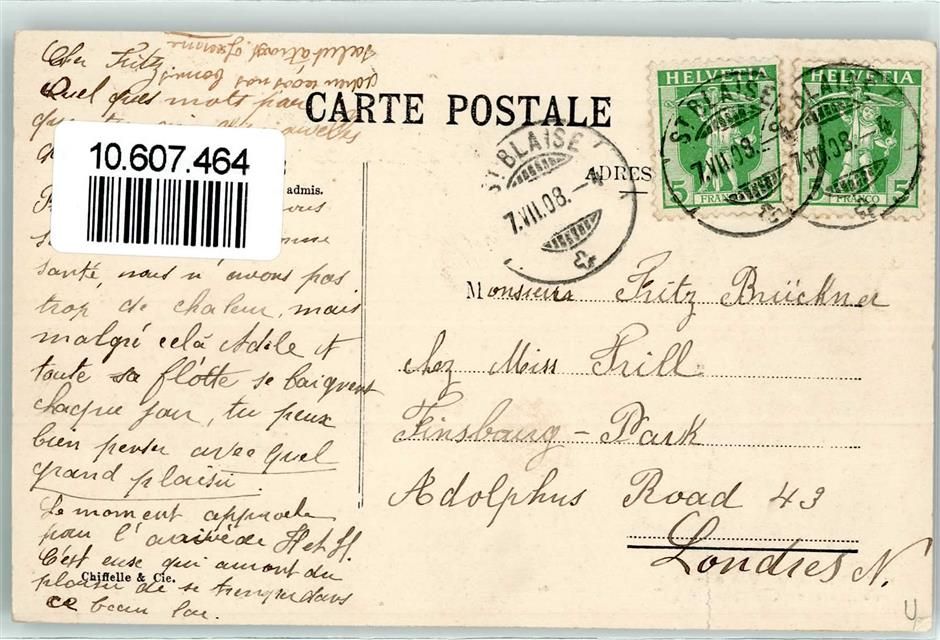 Cher Fritz
Quelques mots pour
que tu aies
10.607.464
santé, nous n'avons pas
trop de chaleur, mais
malgré celà Adèle et
toute sa flotte se baignent
chaque jour, tu peux
bien penser avec quel
grand plaisir.
Le moment approche
pour l'arrivée de H et H.
C'est eux qui auront du
plaisir de se tremper dans
ce beau lac.
Chiffelle & Cie.
CARTE POSTALE
admis.
ADRES
ST. BLAISE
7.VII.08.-4
HELVETIA
5
FRANCO
HELVETIA
5
FRANCO
ST. BLAISE
7.VII.08.-4
ST. BLAISE
7.VII.08.-4
Monsieur Fritz Brückner
chez Miss Trill
Finsbourg-Park
Adolphus Road 43
Londres N.